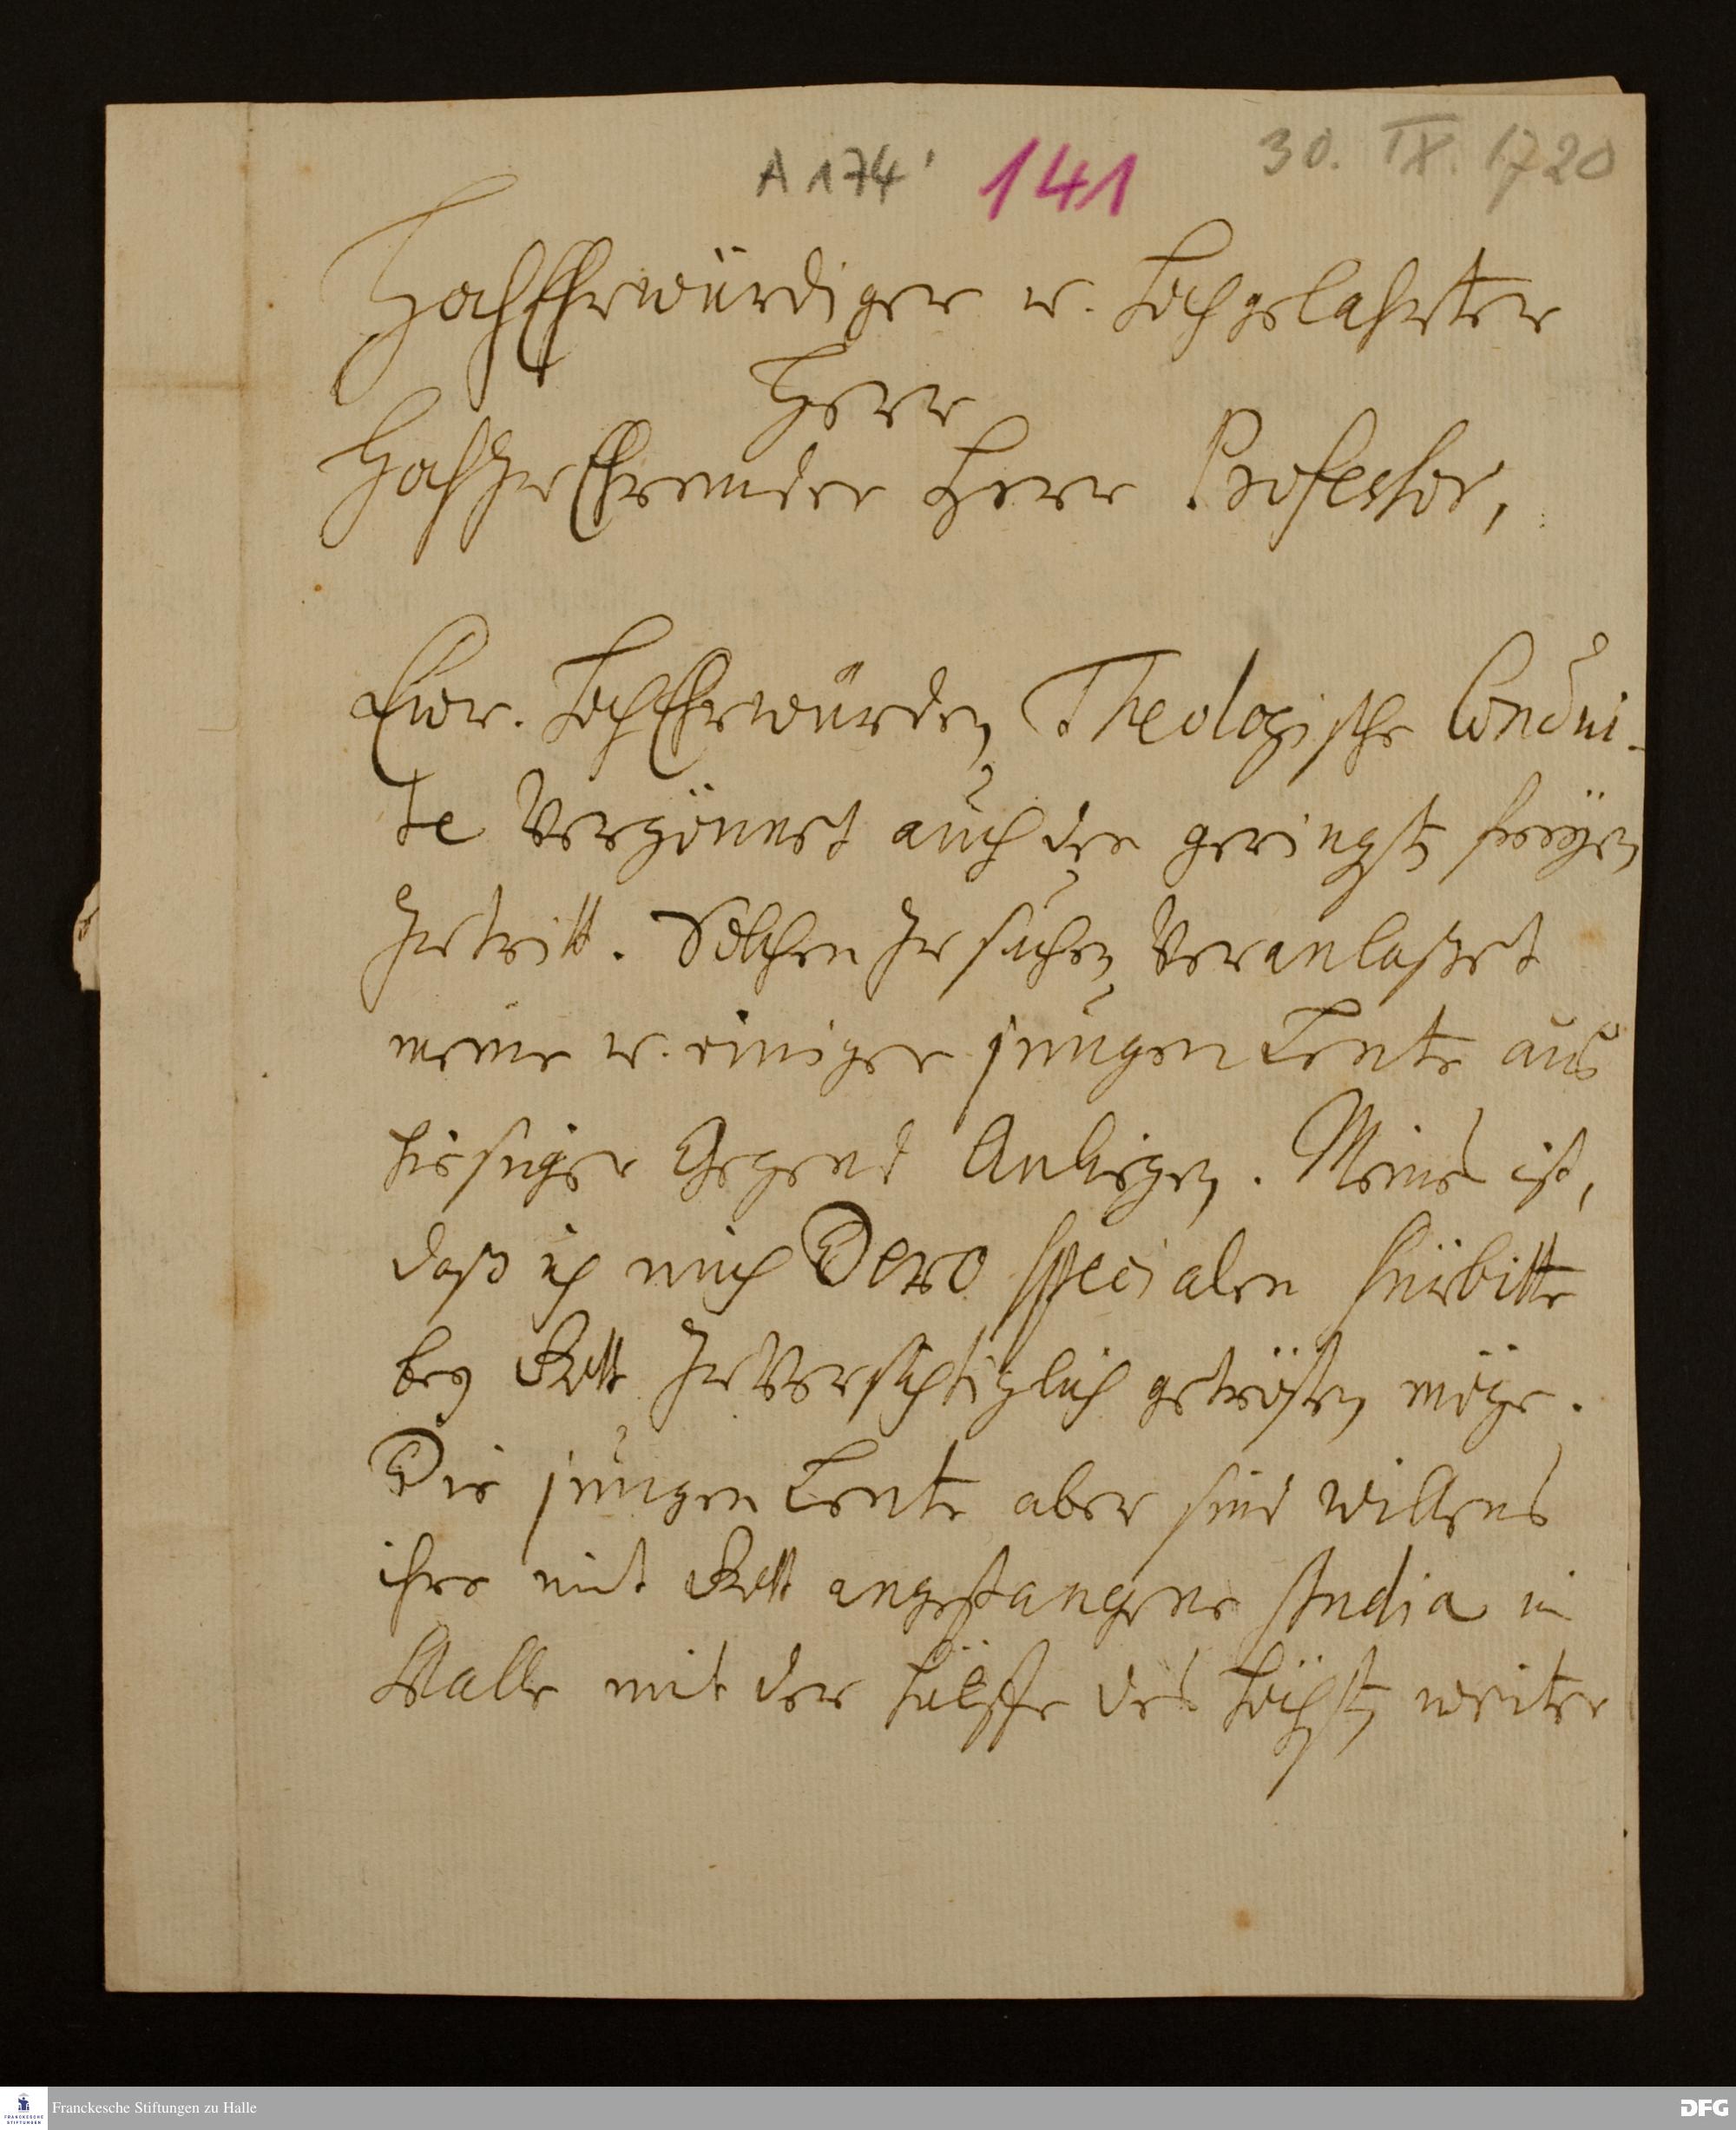 A 174' 141 30. IX. 1720
HochEhrwürdiger u. hochgelahrter
Herr
HochzuEhrender Herr Professor,
Ewr. HochEhrwürden Theologische Condui-
te vergönnet auch den geringsten freyen
Zutritt. Solchen zu suchen veranlaßet
meine u. einiger jungen Leute aus
hiesiger Gegend Anliegen. Meines ist,
daß ich mich Dero specialen fürbitte
bey Gott zuversichtiglich getrösten möge.
Die jungen Leute aber sind willens
ihre mit Gott angefangene studia in
Halle mit der hülffe des höchsten weiter
Franckesche Stiftungen zu Halle
DFG